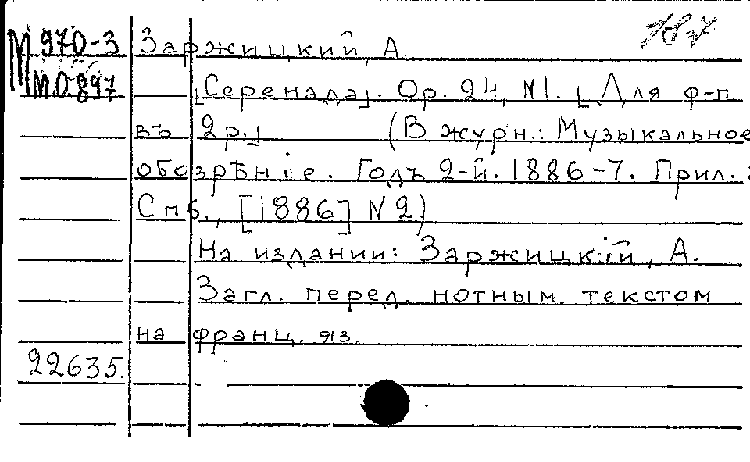 М 970-3 Заржицкий, А.
М.О.897 [Серенада]. Ор. 24, N1. [Для ф-п
въ 2р.] (В журн.: Музыкальное
обозрѣніе. Годъ 2-й. 1886-7. Прил.
Спб., [1886] N 2)
На издании: Заржицкій, А.
Загл. перед. нотным. текстом
на франц. яз.
22635.